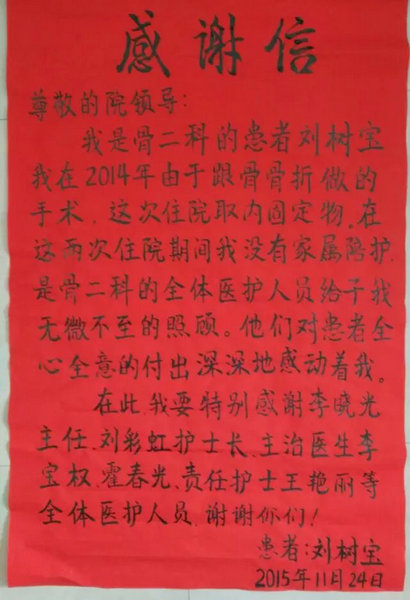 感谢信
尊敬的院领导:
我是骨二科的患者刘树宝
我在2014年由于跟骨骨折做的
手术，这次住院取内固定物。在
这两次住院期间我没有家属陪护，
是骨二科的全体医护人员给予我
无微不至的照顾。他们对患者全
心全意的付出深深地感动着我。
在此，我要特别感谢李晓光
主任、刘彩虹护士长、主治医生李
宝权、霍春光、责任护士王艳丽等
全体医护人员，谢谢你们！
患者:刘树宝
2015年11月24日